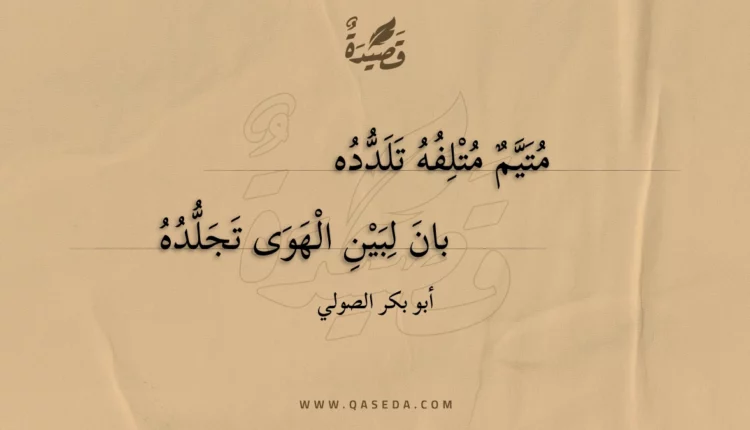 قَصِيْدَةٌ
مُتَيَّمٌ مُتْلِفُهُ تَلَدُّدُه
بانَ لِبَيْنِ الْهَوَى تَجَلُّدُهُ
أبو بكر الصولي
WWW.QASEDA.COM